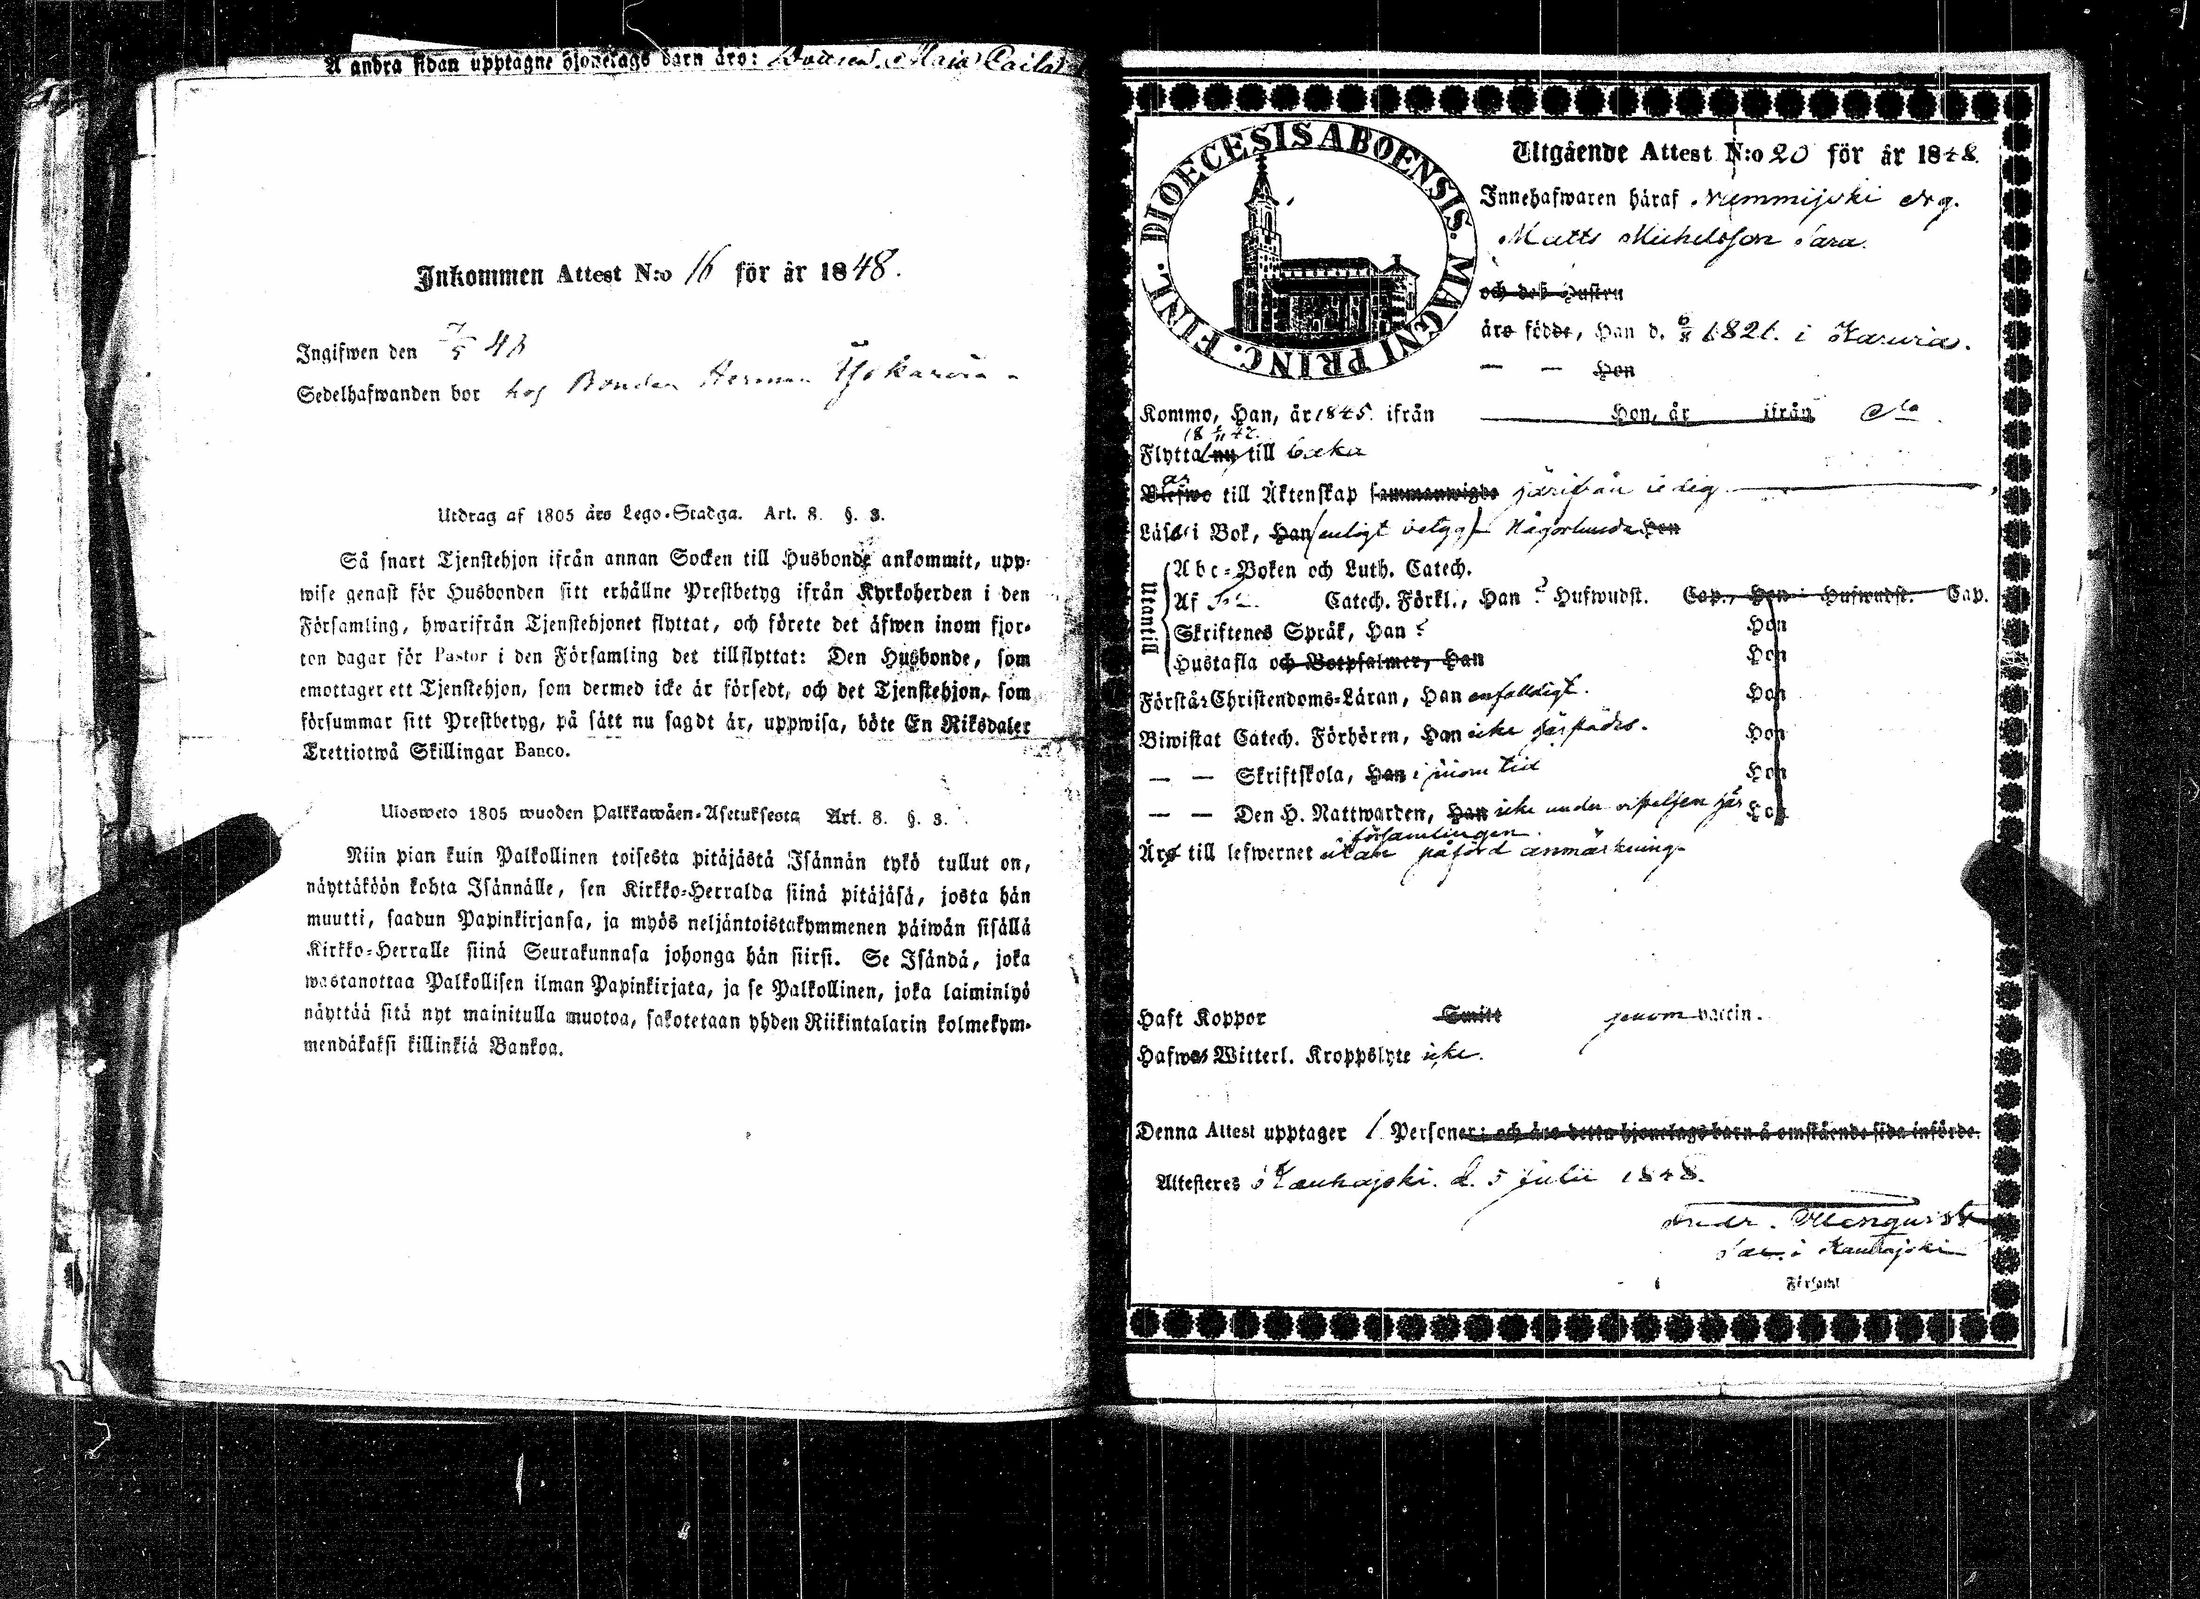 Å andra sidan upptagne hjonelags barn äro: Maja Caisa
Inkommen Attest N:o 16 för år 1848.
Ingifwen den 7/5 48
Sedelhafwanden bor hos Bonden Herman
Utdrag af 1805 års Lego-Stadga. Art. 8. §. 3.
Så snart Tjenstehjon ifrån annan Socken till Husbonde ankommit, upp-
wise genast för Husbonden sitt erhållne Prestbetyg ifrån Kyrkoherden i den
Församling, hwarifrån Tjenstehjonet flyttat, och förete det äfwen inom fjor-
ton dagar för Pastor i den Församling det tillflyttat: Den Husbonde, som
emottager ett Tjenstehjon, som dermed icke är försedt, och det Tjenstehjon, som
försummar sitt Prestbetyg, på sätt nu sagdt är, uppwisa, böte En Riksdaler
Trettiotwå Skillingar Banco.
Ulosweto 1805 wuoden Palkkawäen-Asetuksesta Art. 8. §. 3.
Niin pian kuin Palkollinen toisesta pitäjästä Isännän tykö tullut on,
näyttäköön kohta Isännälle, sen Kirkko-Herralda siinä pitäjäsä, josta hän
muutti, saadun Papinkirjansa, ja myös neljäntoistakymmenen päiwän sisällä
Kirkko-Herralle siinä Seurakunnasa johonga hän siirsi. Se Isändä, joka
wastanottaa Palkollisen ilman Papinkirjata, ja se Palkollinen, joka laiminlyö
näyttää sitä nyt mainitulla muotoa, sakotetaan yhden Riikintalarin kolmekym-
mendäkaksi killinkiä Bankoa.
DIOECESIS ABOENSIS. MAGNI PRINC. FINL.
Utgående Attest N:o 20 för år 1848.
Innehafwaren häraf Nummijoki drg.
Matts Michelsson Sara.
och deß Hustru
äro födde, Han d. 6/8 1821. i Karvia.
— — Hon
Kommo, Han, år 1845. ifrån Hon, år ifrån
Flytta nu till
Blefwo till Äktenskap sammanwigde härifrån ledig
Läsa i Bok, Han (enligt betyg) Någorlunda Hon
Utantill
Abc-Boken och Luth. Catech.
Af Catech. Förkl., Han ? Hufwudst. Cap., Hon Hufwudst. Cap.
Skriftenes Språk, Han ? Hon
Hustafla och Botpsalmer, Han Hon
Förstår Christendoms-Läran, Han enfalldigt. Hon
Biwistat Catech. Förhören, Han icke härstädes. Hon
— — Skriftskola, Han i sinom tid Hon
— — Den H. Nattwarden, Han icke under vistelsen här Hon
församlingen.
Äro till lefwernet utan påförd anmärkning
Haft Koppor Smitt genom vaccin.
Hafwa Witterl. Kroppslyte icke.
Denna Attest upptager 1 Personer; och äro detta hjonelags barn å omstående sida införde.
Attesteres i Kauhajoki. d. 5 Julii 1848.
Andr.
Sac. i Kauhajoki
Församl